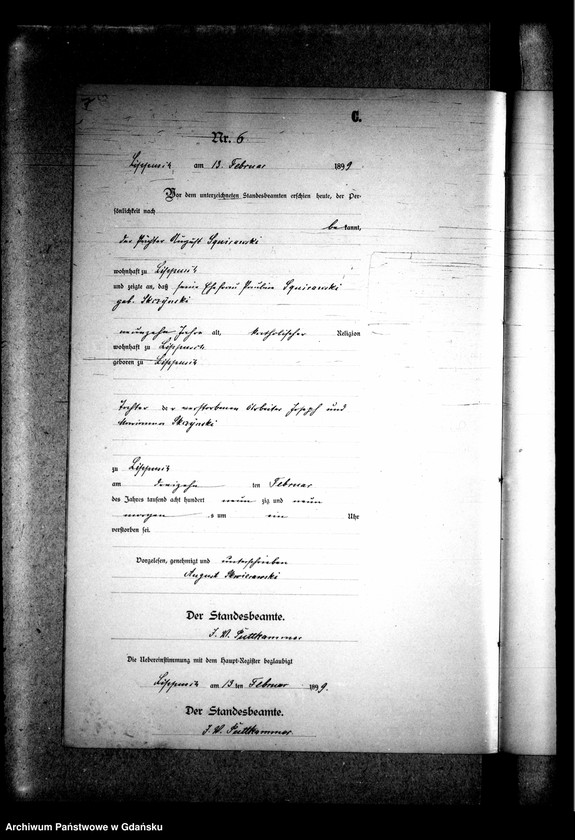 C.
Nr. 6
am 13. Februar 1899
Vor dem unterzeichneten Standesbeamten erschien heute, der Per-
sönlichkeit nach
bekannt,
der Pächter August
wohnhaft zu
und zeigte an, daß seine Ehefrau Pauline
geb. Skrzynski
neunzehn Jahre alt, katholischer Religion
wohnhaft zu
geboren zu
Tochter der verstorbenen Arbeiter Joseph und
Marianna Skrzynski
zu
am dreizehn ten Februar
des Jahres tausend acht hundert neun zig und neun
morgen s um ein Uhr
verstorben sei.
Vorgelesen, genehmigt und unterschrieben
August
Der Standesbeamte.
J. V. Puttkammer
Die Uebereinstimmung mit dem Haupt-Register beglaubigt
am 13 ten Februar 1899.
Der Standesbeamte.
J. V. Puttkammer
Archiwum Państwowe w Gdańsku